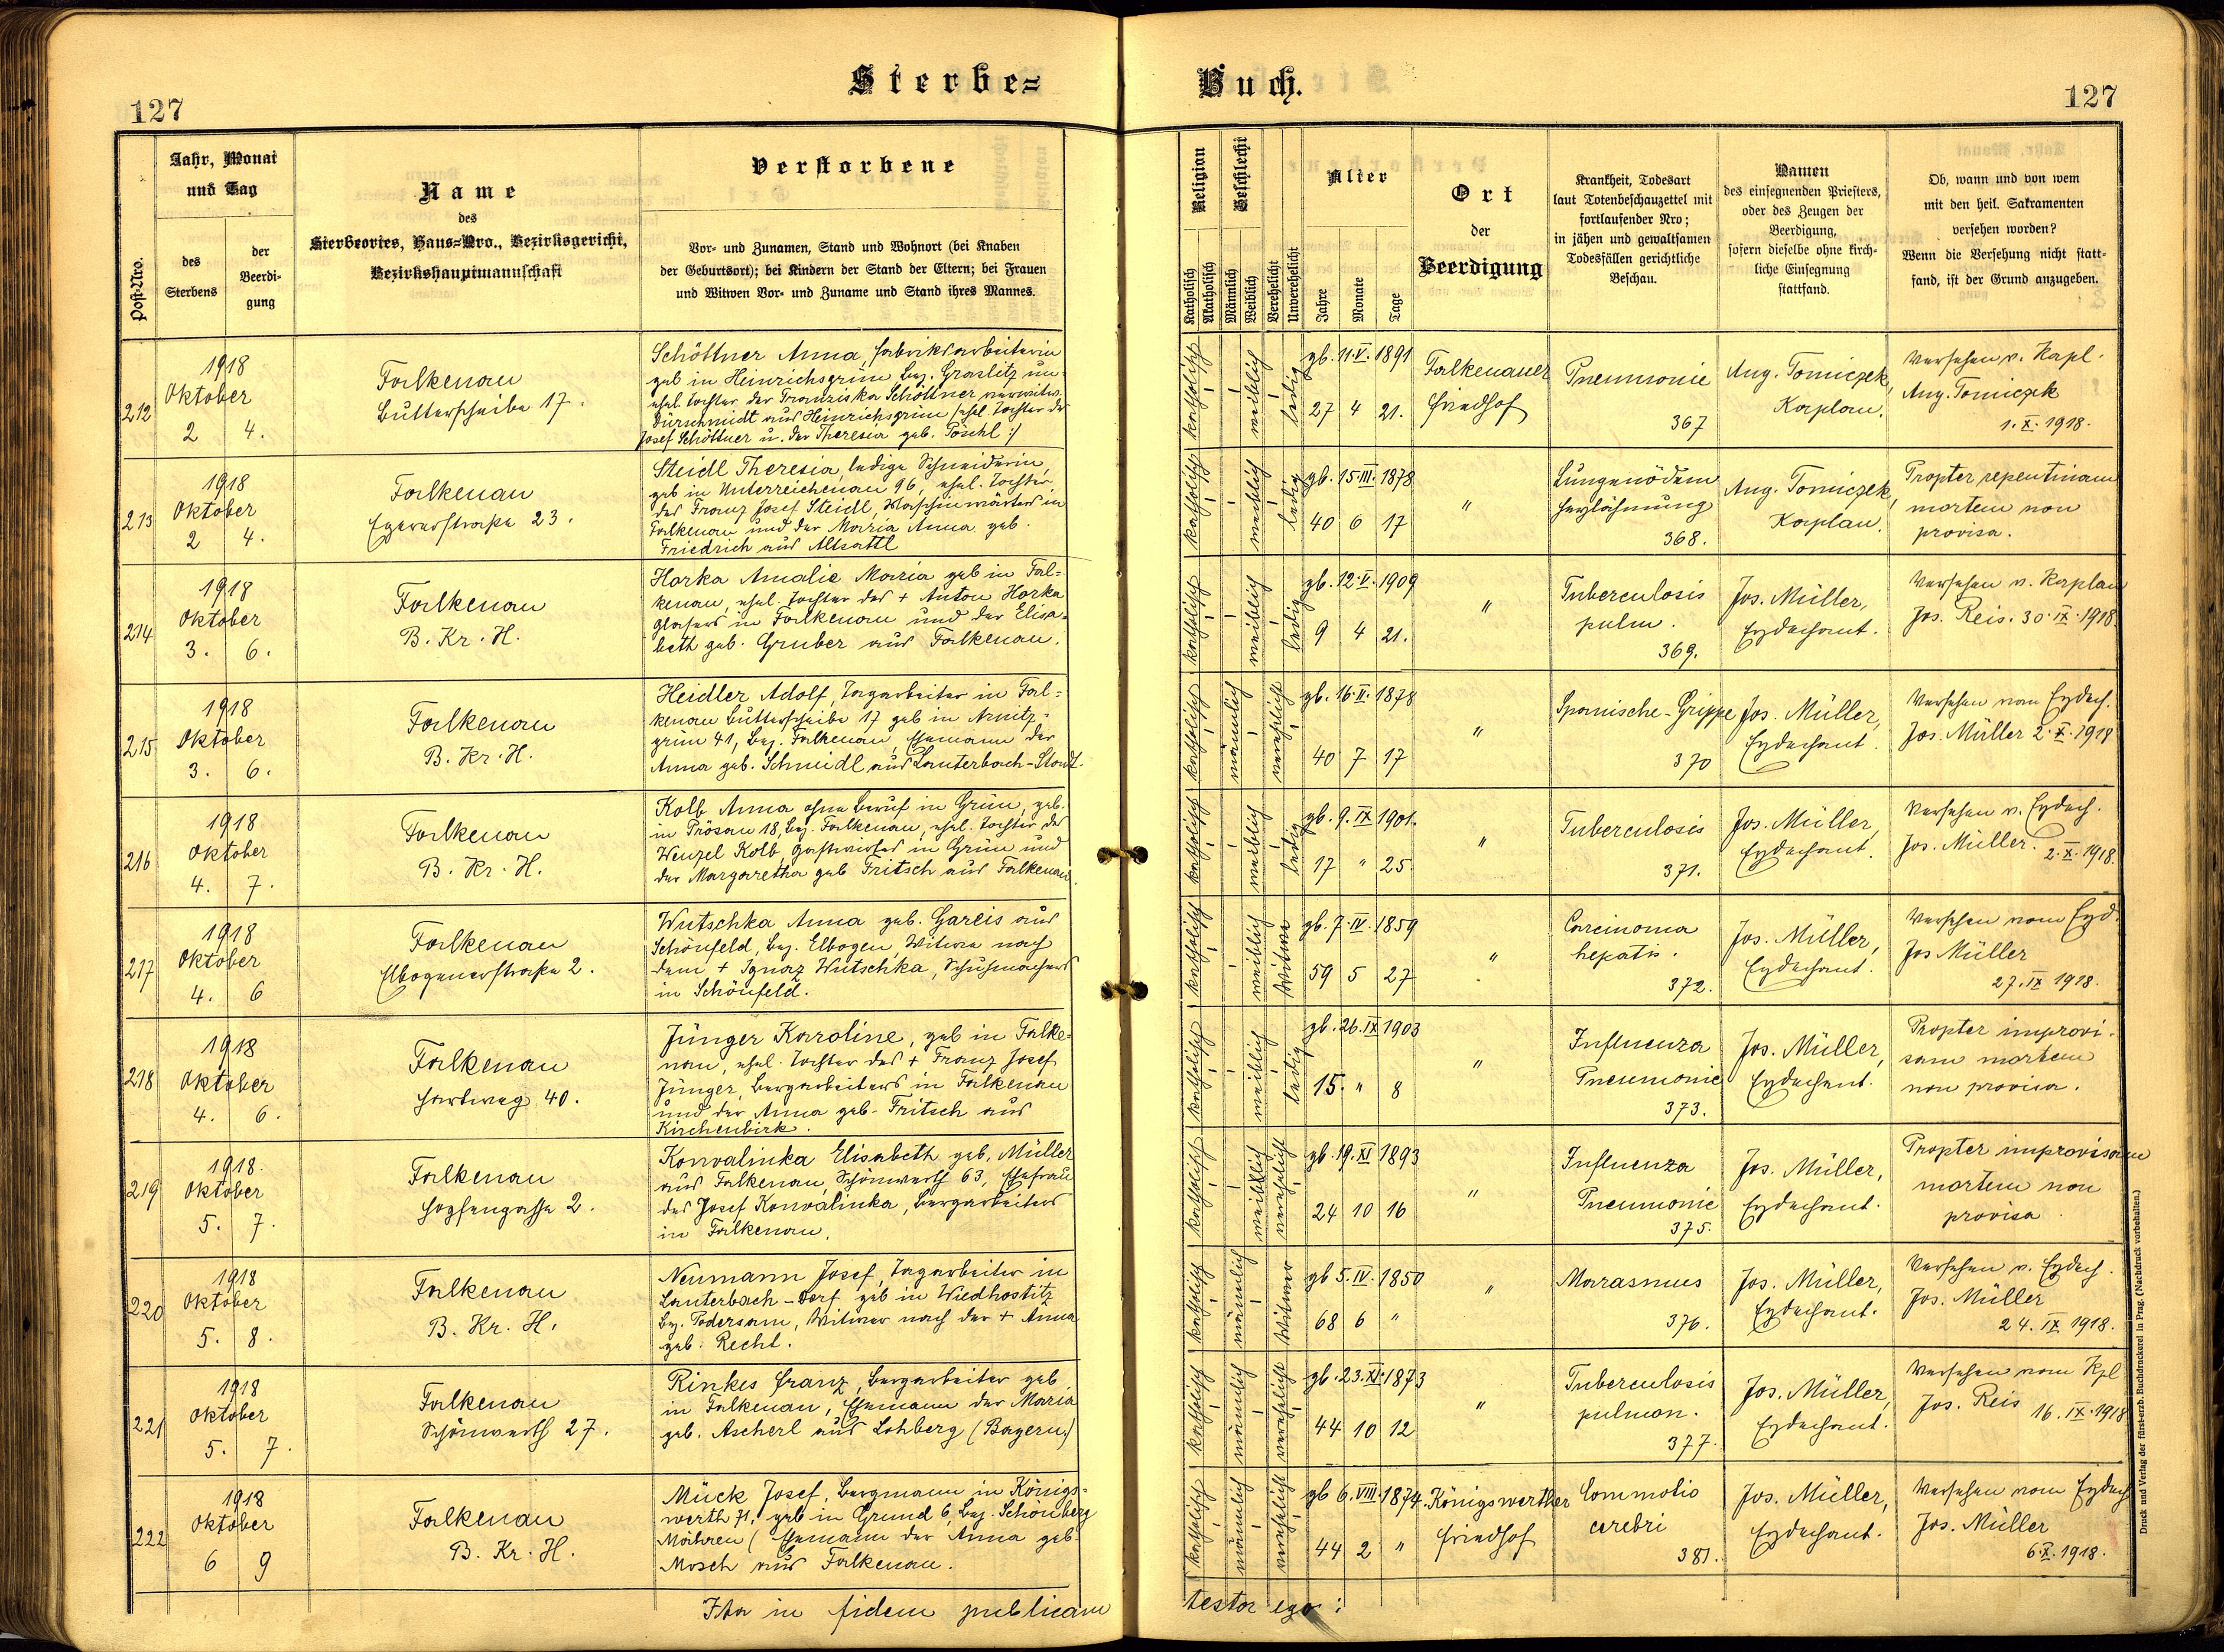 Sterbe= Buch.
127
127
Post-Nro.
Jahr, Monat
und Tag
des
Sterbens
der
Beerdi-
gung
Name
des
Sterbeortes, Haus=Nro., Bezirksgericht,
Bezirkshauptmannschaft
Verstorbene
Vor- und Zunamen, Stand und Wohnort (bei Knaben
der Geburtsort); bei Kindern der Stand der Eltern; bei Frauen
und Witwen Vor- und Zuname und Stand ihres Mannes.
Religion
Katholisch
Akatholisch
Geschlecht
Männlich
Weiblich
Verehelicht
Unverehelicht
Alter
Jahre
Monate
Tage
Ort
der
Beerdigung
Krankheit, Todesart
laut Totenbeschauzettel mit
fortlaufender Nro;
in jähen und gewaltsamen
Todesfällen gerichtliche
Beschau.
Namen
des einsegnenden Priesters,
oder des Zeugen der
Beerdigung,
sofern dieselbe ohne kirch-
liche Einsegnung
stattfand.
Ob, wann und von wem
mit den heil. Sakramenten
versehen worden?
Wenn die Versehung nicht statt-
fand, ist der Grund anzugeben.
212
1918
Oktober
2 4.
Falkenau
Butterscheibe 17.
Schöttner Anna, Fabriksarbeiterin
geb in Heinrichsgrün Bez. Graslitz un-
ehel. Tochter der Franziska Schöttner verwitw.
Dürschmidt aus Heinrichsgrün (ehel. Tochter der
Josef Schöttner u. der Theresia geb. Pöschl :)
katholisch
weiblich
ledig
gb. 11. V. 1891
27 4 21.
Falkenauer
Friedhof
Pneumonie
367
Aug. Tomiczek,
Kaplan.
Versehen v. Kapl.
Aug. Tomiczek
1. X. 1918.
213
1918
Oktober
2 4.
Falkenau
Egererstraße 23.
Steidl Theresia, ledige Schneiderin,
geb in Unterreichenau 96, ehel. Tochter
des Franz Josef Steidl, Maschinwärters in
Falkenau und der Maria Anna geb.
Friedrich aus Altsattl
katholisch
weiblich
ledig
gb. 15. III. 1878
40 6 17
"
Lungenödem
Herzlähmung
368.
Aug. Tomiczek,
Kaplan.
Propter repentinam
mortem non
provisa.
214
1918
Oktober
3. 6.
Falkenau
B. Kr. H.
Horka Amalie Maria geb in Fal=
kenau, ehel. Tochter des + Anton Horka
Glasers in Falkenau und der Elisa-
beth geb. Gruber aus Falkenau.
katholisch
weiblich
ledig
gb. 12. V. 1909
9 4 21.
"
Tuberculosis
pulm.
369.
Jos. Müller,
Erzdechant.
Versehen v. Kaplan
Jos. Reis. 30. IX. 1918.
215
1918
Oktober
3. 6.
Falkenau
B. Kr. H.
Heidler Adolf, Tagarbeiter in Fal=
kenau Butterscheibe 17 geb in Arnitz-
grün 41, Bez. Falkenau, Ehemann der
Anna geb. Schmidl aus Lauterbach-Stadt.
katholisch
männlich
verehelicht
gb. 16. II. 1878
40 7 17
"
Spanische-Grippe
370
Jos. Müller,
Erzdechant.
Versehen vom Erzdech.
Jos. Müller 2. X. 1918
216
1918
Oktober
4. 7.
Falkenau
B. Kr. H.
Kolb Anna ohne Beruf in Grün, geb.
in Prösau 18, Bez. Falkenau, ehel. Tochter des
Wenzel Kolb, Gastwirtes in Grün und
der Margaretha geb Fritsch aus Falkenau.
katholisch
weiblich
ledig
gb. 9. IX. 1901.
17 " 25.
"
Tuberculosis
371.
Jos. Müller,
Erzdechant.
Versehen v. Erzdech.
Jos. Müller. 2. X. 1918.
217
1918
Oktober
4. 6
Falkenau
Elbogenerstraße 2.
Wutschka Anna geb. Gareis aus
Schönfeld, Bez. Elbogen Witwe nach
dem + Ignaz Wutschka, Schuhmachers
in Schönfeld.
katholisch
weiblich
Witwe
gb. 7. IV. 1859
59 5 27
"
Carcinoma
hepatis.
372.
Jos. Müller,
Erzdechant.
Versehen vom Erzd.
Jos Müller
27. IX 1918.
218
1918
Oktober
4. 6.
Falkenau
Hartweg 40.
Jünger Karoline, geb in Falke-
nau, ehel. Tochter des + Franz Josef
Jünger, Bergarbeiters in Falkenau
und der Anna geb. Fritsch aus
Kirchenbirk.
katholisch
weiblich
ledig
gb. 26. IX 1903
15. " 8
"
Influenza
Pneumonie
373.
Jos. Müller,
Erzdechant.
Propter improvi-
sam mortem
non provisa.
219
1918.
Oktober
5. 7.
Falkenau
Hopfengasse 2.
Konvalinka Elisabeth geb. Müller
aus Falkenau, Schönwerth 63, Ehefrau
des Josef Konvalinka, Bergarbeiters
in Falkenau.
katholisch
weiblich
verehelicht
gb. 19. XI 1893
24 10 16
"
Influenza
Pneumonie
375.
Jos. Müller,
Erzdechant.
Propter improvisam
mortem non
provisa.
220
1918
Oktober
5. 8.
Falkenau
B. Kr. H.
Neumann Josef, Tagarbeiter in
Lauterbach-Dorf geb in Wiedhostitz
Bez. Podersam, Witwer nach der + Anna
geb. Recht.
katholisch
männlich
Witwer
gb 5. IV. 1850
68 6 "
"
Marasmus
376.
Jos. Müller,
Erzdechant.
Versehen v. Erzdech.
Jos. Müller
24. IX 1918.
221
1918
Oktober
5. 7.
Falkenau
Schönwerth 27.
Rinkes Franz, Bergarbeiter geb
in Falkenau, Ehemann der Maria
geb. Ascherl aus Lohberg (Bayern)
katholisch
männlich
verehelicht
gb. 23. XI. 1873
44 10 12
"
Tuberculosis
pulmon.
377.
Jos. Müller,
Erzdechant.
Versehen vom Kpl
Jos. Reis 16. IX. 1918
222
1918
Oktober
6 9
Falkenau
B. Kr. H.
Mück Josef, Bergmann in Königs-
werth 71, geb in Grund 6, Bez. Schönberg
Mähren ( Ehemann der Anna geb.
Mosch aus Falkenau.
katholisch
männlich
verehelicht
gb 6. VIII. 1874.
44 2 "
Königswerther
Friedhof
Commotio
cerebri
381.
Jos. Müller,
Erzdechant.
Versehen vom Erzdech
Jos. Müller
6. X. 1918.
Ita in fidem publicam testor ego:
Druck und Verlag der fürst-erzb. Buchdruckerei in Prag. (Nachdruck vorbehalten.)